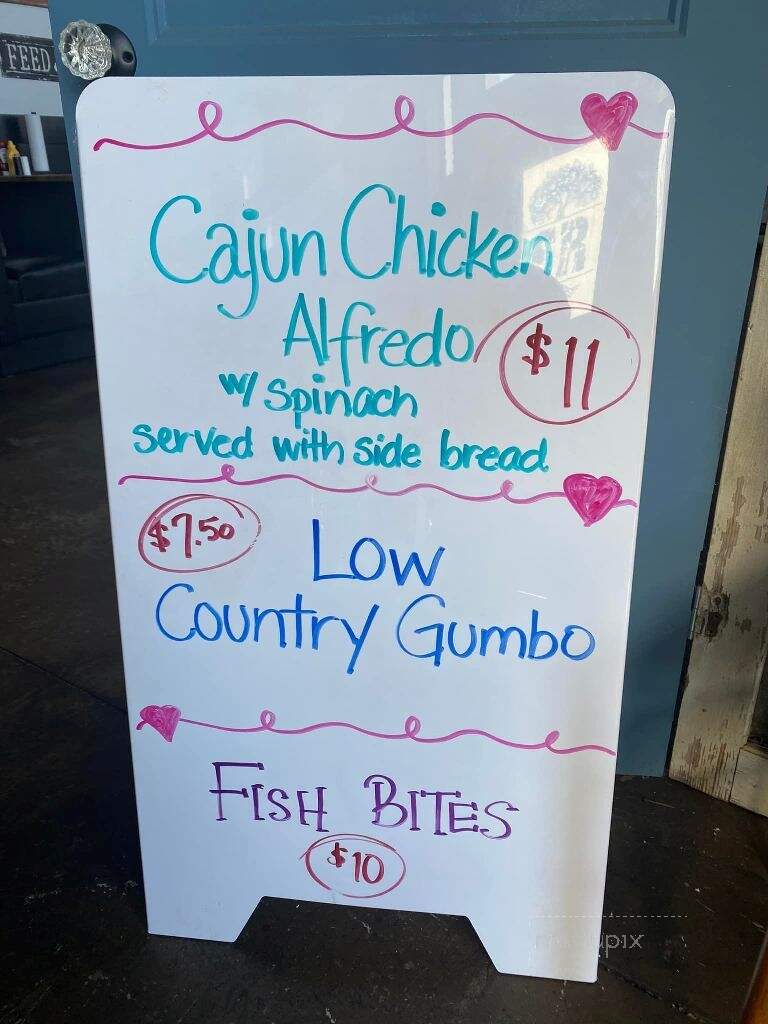 FEED
Cajun Chicken
Alfredo $11
w/ spinach
served with side bread
$7.50
Low
Country Gumbo
FISH BITES
$10